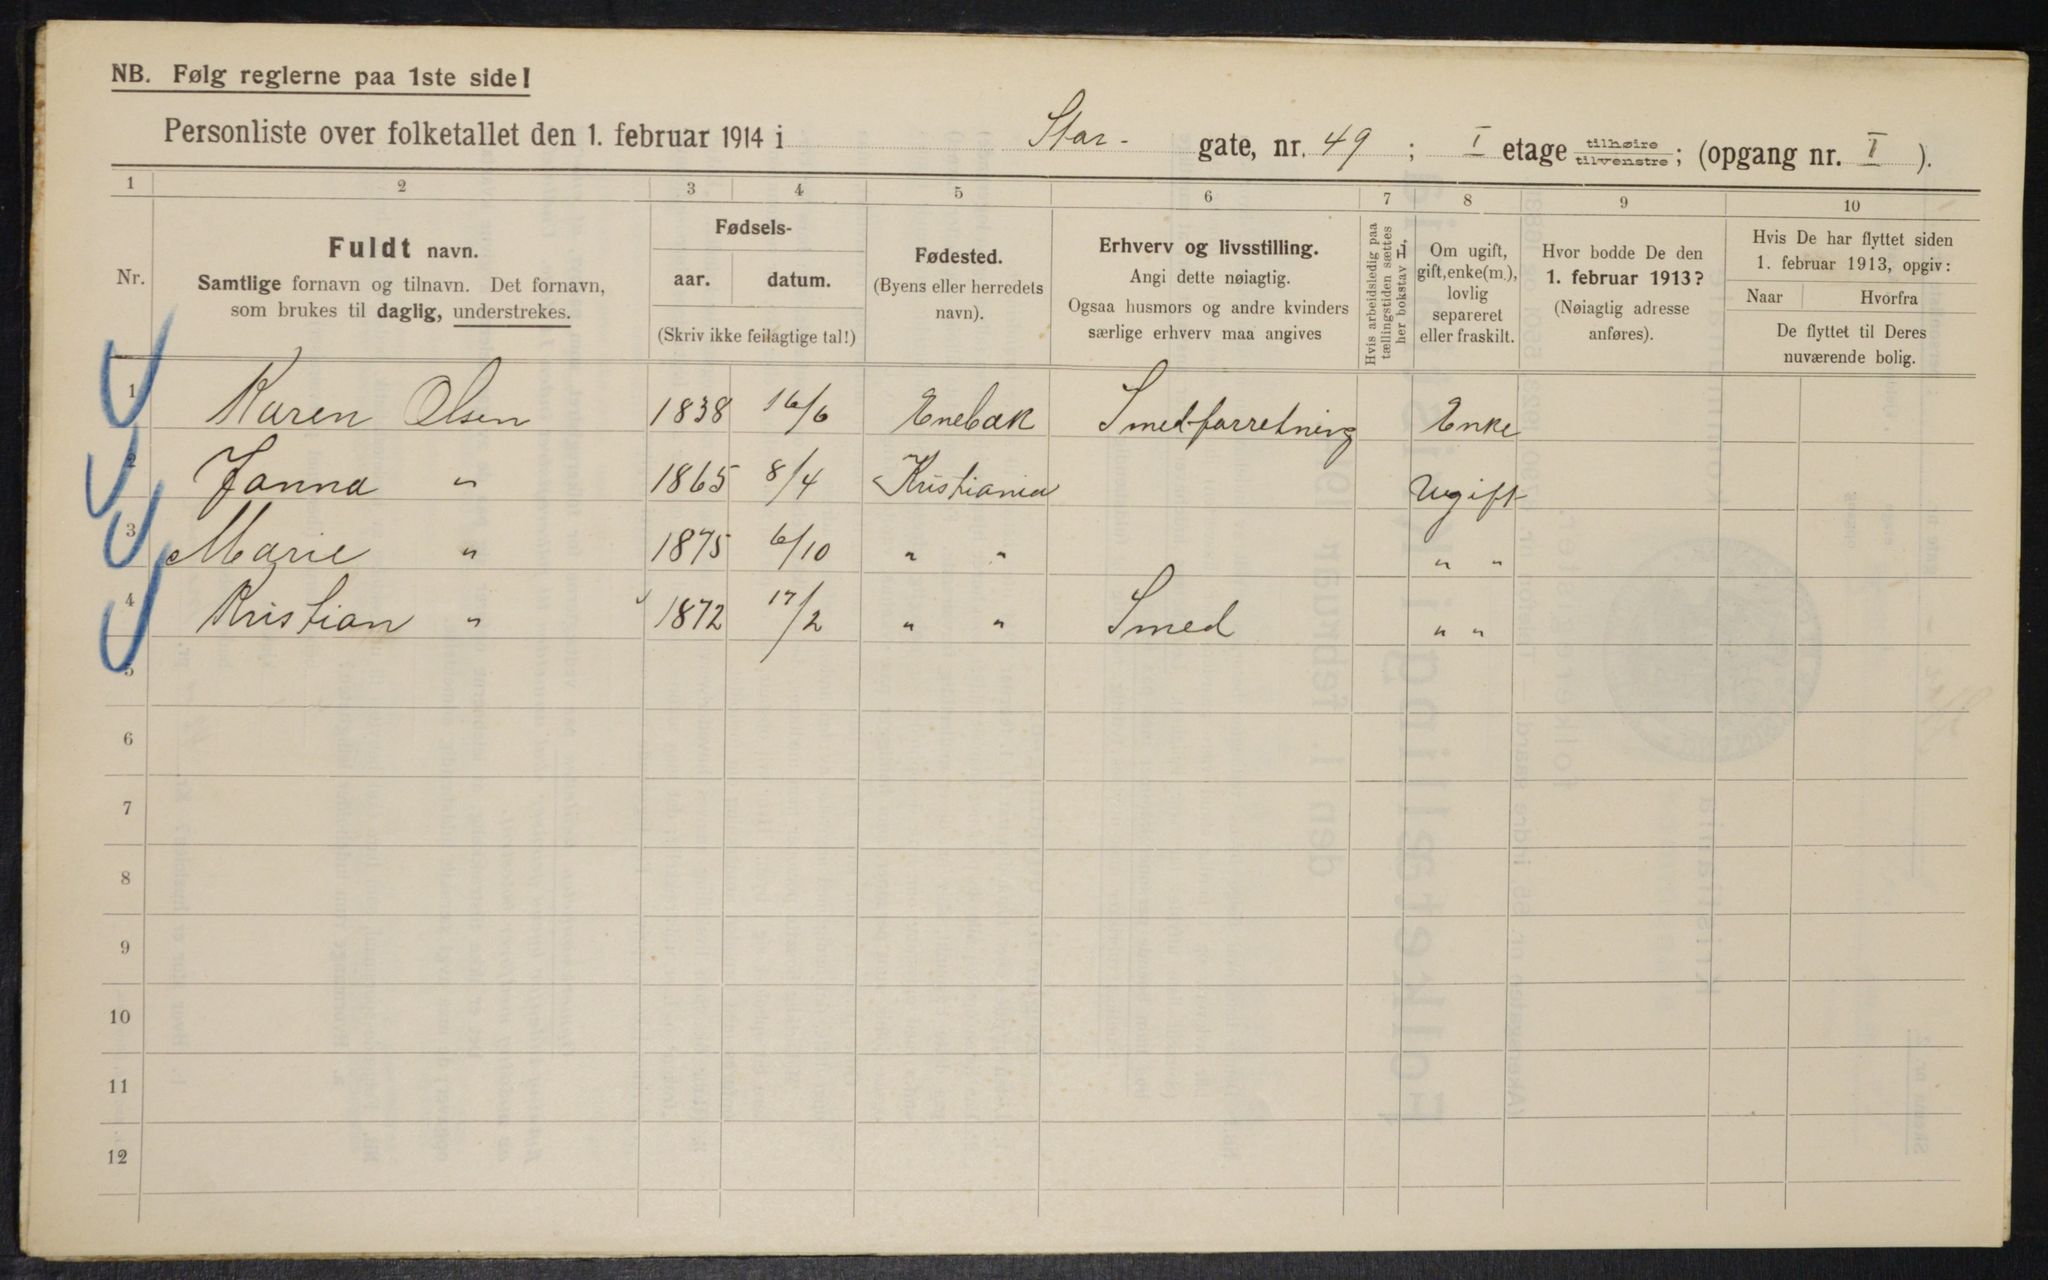 NB. Følg reglerne paa 1ste side!
Personliste over folketallet den 1. februar 1914 i Star- gate, nr. 49 ; I etage tilhøire tilvenstre ; (opgang nr. I ).
1 2 3 4 5 6 7 8 9 10
Nr.
Fuldt navn.
Samtlige fornavn og tilnavn. Det fornavn,
som brukes til daglig, understrekes.
Fødsels-
aar. datum.
(Skriv ikke feilagtige tal!)
Fødested.
(Byens eller herredets
navn).
Erhverv og livsstilling.
Angi dette nøiagtig.
Ogsaa husmors og andre kvinders
særlige erhverv maa angives
Hvis arbeidsledig paa
tællingstiden sættes
her bokstav L.
Om ugift,
gift, enke(m.),
lovlig
separeret
eller fraskilt.
Hvor bodde De den
1. februar 1913?
(Nøiagtig adresse
anføres).
Hvis De har flyttet siden
1. februar 1913, opgiv:
Naar Hvorfra
De flyttet til Deres
nuværende bolig.
1 Karen Olsen 1838 16/6 Enebak Smedforretning Enke
2 Janna " 1865 8/4 Kristiania Ugift
3 Marie " 1875 6/10 " " " "
4 Kristian " 1872 17/2 " " Smed " "
5
6
7
8
9
10
11
12